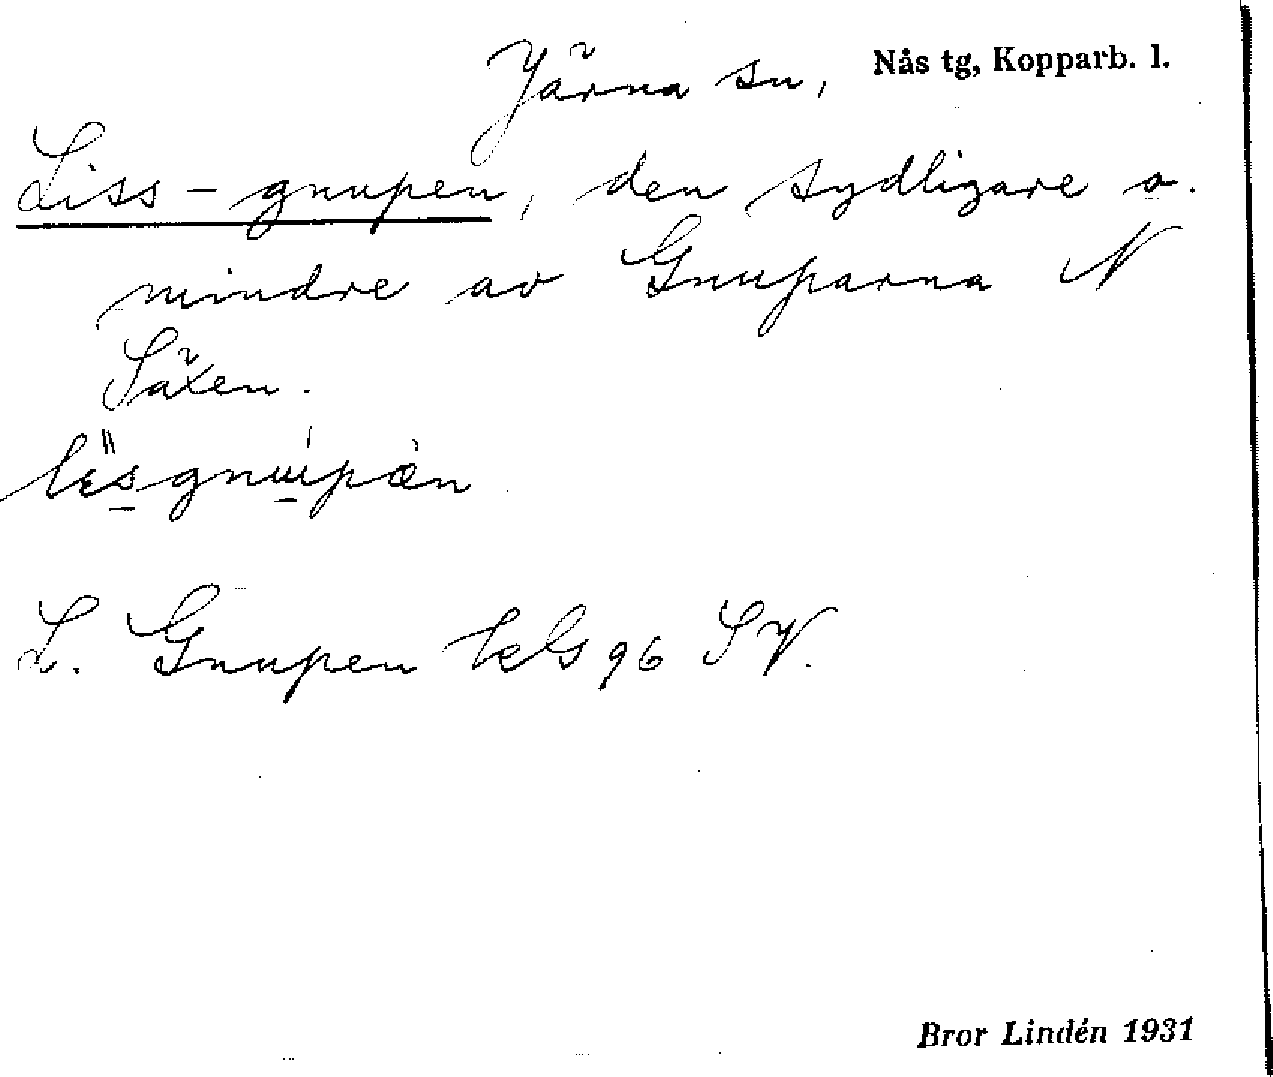 Järna sn, Nås tg, Kopparb. l.
Liss-gnupen, den sydligare o.
mindre av Gnuparna N
Säxen.
L. Gnupen kbl 96 SV.
Bror Lindén 1931